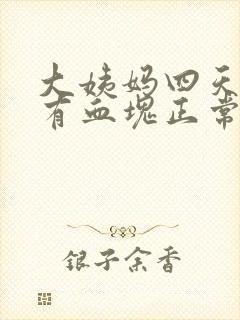 大姨妈四天
有血块正常
银子余香